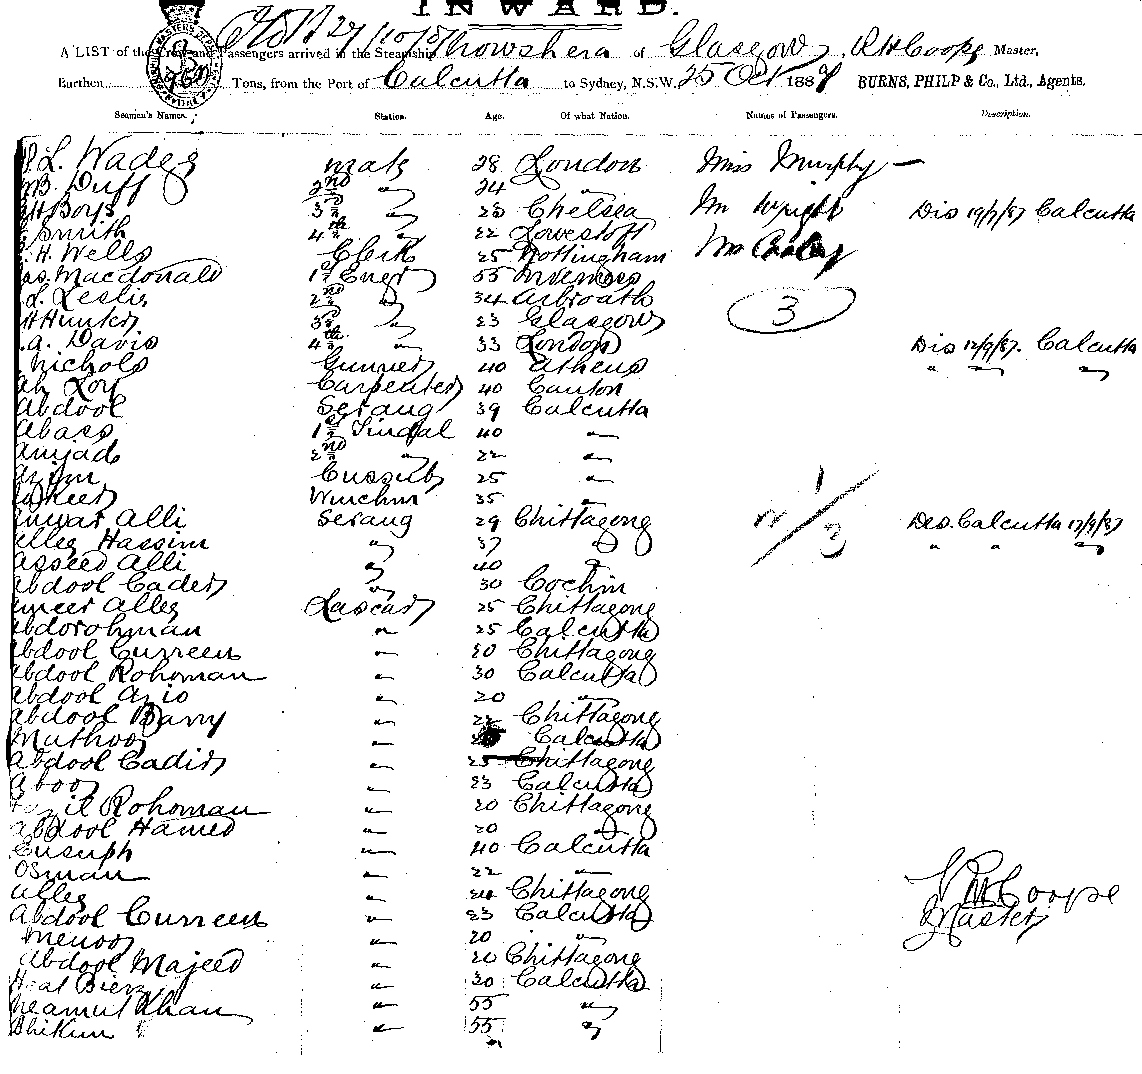 INWARD.
A LIST of the Crew and Passengers arrived in the Steamship Nowshera of Glasgow, R H Coope Master.
Burthen Tons, from the Port of Calcutta to Sydney, N.S.W. 25 Oct 1887 BURNS, PHILP & Co., Ltd., Agents.
Seamen's Names. Station. Age. Of what Nation. Names of Passengers. Description.
L. Wade mate 28 London Miss Murphy —
Duff 2nd " 24 "
H Boys 3rd " 23 Chelsea Mr Wright Dis 19/9/87 Calcutta
Smith 4th " 22 Lowestoft
H. Wells Clerk 25 Nottingham Mr
Macdonald 1st Engr 55 Inverness
L. Leslie 2nd " 34 Arbroath
3
H Hunter 3rd " 23 Glasgow
a. Davis 4th " 33 London Dis 12/9/87. Calcutta
Nichols Gunner 40 Athens " " "
Ah Loy Carpenter 40 Canton
Abdool Serang 39 Calcutta
Abass 1st Tindal 40 "
Amjad 2nd " 22 "
Cussub 25 "
Winchm 35 "
Anwar Alli Serang 29 Chittagong Des. Calcutta 17/9/87
Alleg Hassim " 37 " " " "
Asseed Alli " 40 "
Abdool Cader " 30 Cochin
Ameer Alleg Lascar 25 Chittagong
Abdorohman " 25 Calcutta
Abdool Curreen " 20 Chittagong
Abdool Rohoman " 30 Calcutta
Abdool Azio " 20 "
Abdool Barry " 22 Chittagong
Muthoo " Calcutta
Abdool Cadir " 25 Chittagong
Aboo " 23 Calcutta
Rohoman " 20 Chittagong
Abdool Hamed " 20 "
Eusuph " 40 Calcutta
Osman " 22 "
Alleg " 24 Chittagong
Abdool Curreen " 23 Calcutta
R H Coope
Master
Menoo " 20 "
Abdool Majeed " 20 Chittagong
" 30 Calcutta
Neamut Khan " 55 "
Bhikun " 55 "